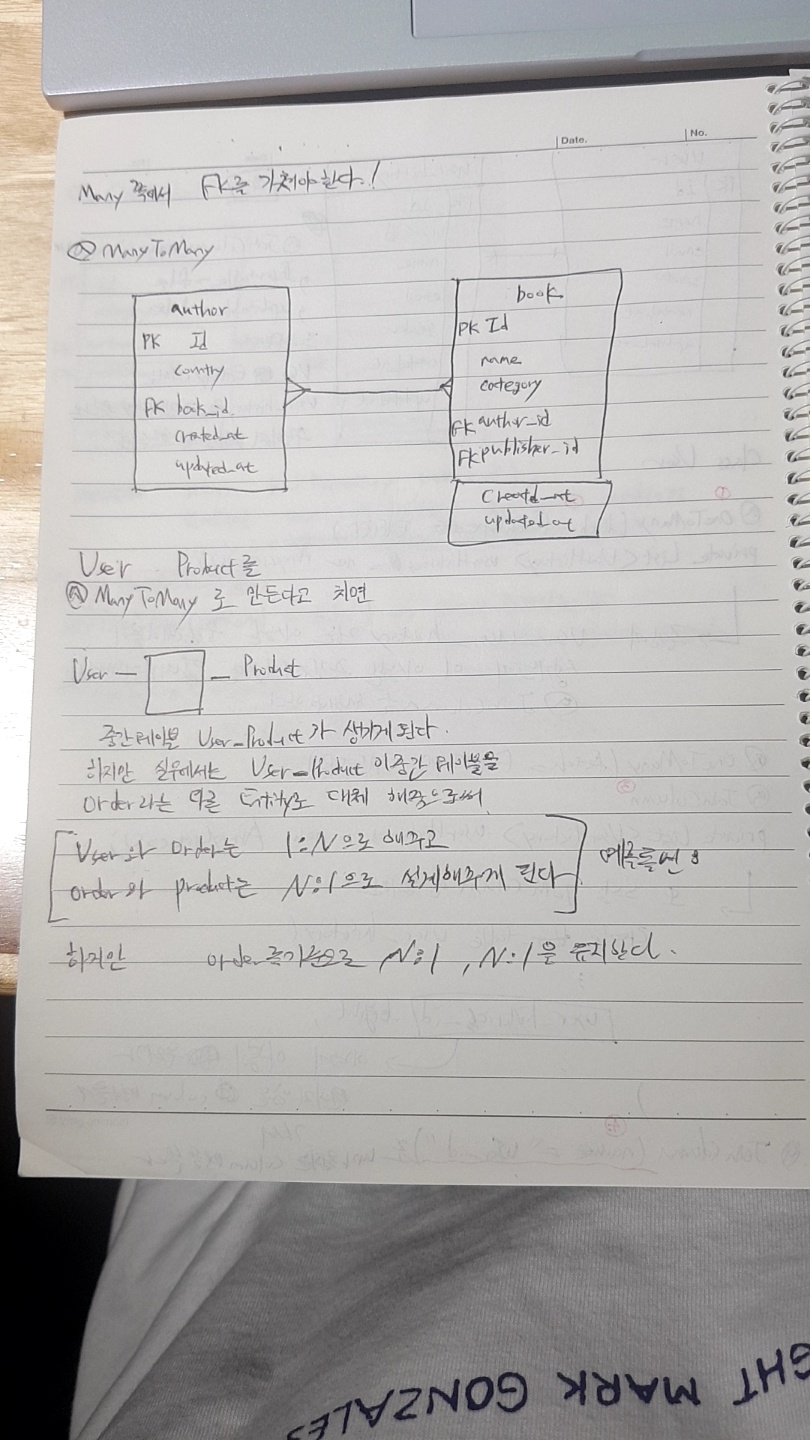 Date.
No.
Many 쪽에서 FK를 가져야한다!
@ManyToMany
author
PK Id
country
FK book_id
created_at
updated_at
book
PK Id
name
category
FK author_id
FK publisher_id
created_at
updated_at
User Product를
@ManyToMany 로 만든다고 치면
User — — Product
중간테이블 User_Product가 생기게된다.
하지만 실무에서는 User_Product 이중간 테이블을
Order라는 Entity로 대체 해줌으로써
User와 Order는 1:N으로 해주고
order와 product는 N:1으로 설계해주게 된다
예를들면
하지만 order쪽기준으로 N:1, N:1을 유지한다.
GHT MARK GONZALES